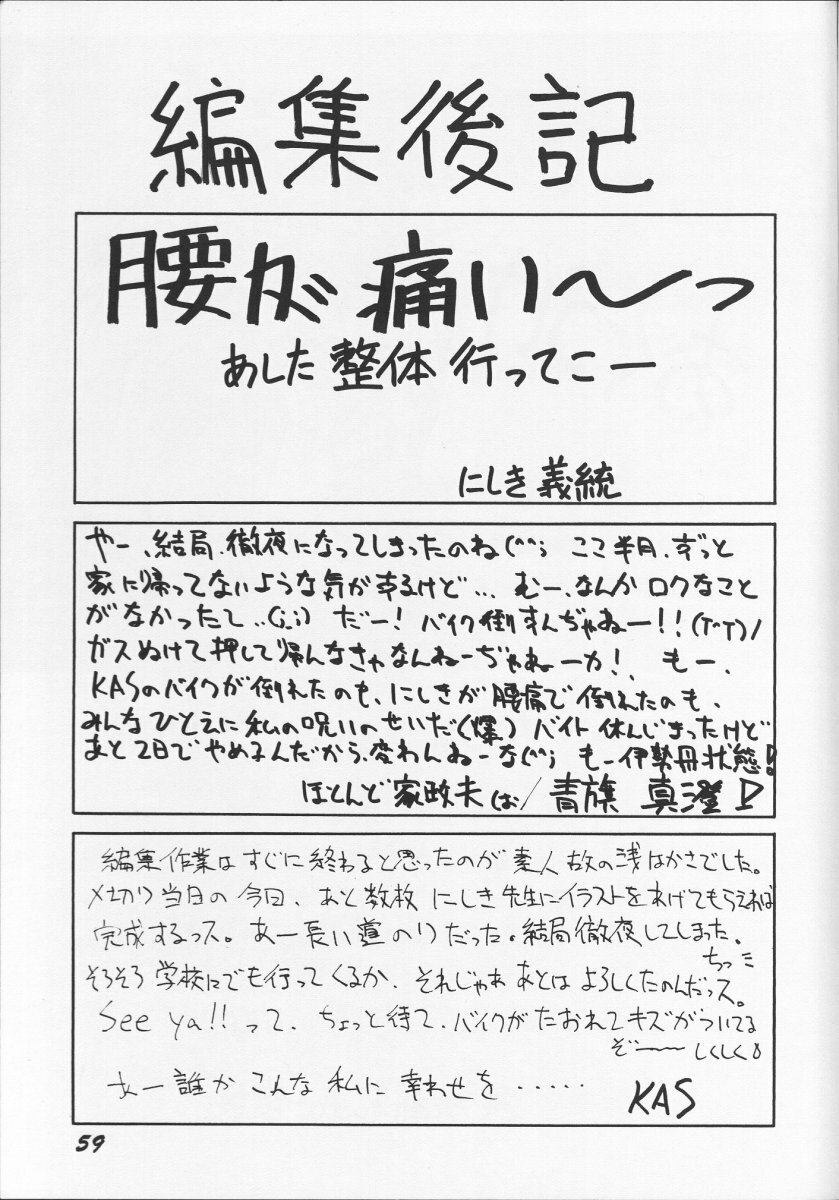 編集後記
腰が痛い〜っ
あした整体行ってこー
にしき義統
やー、結局、徹夜になってしまったのね(^^; ここ半月、ずっと
家に帰ってないような気がするけど… むー、なんかロクなこと
がなかったて‥(;_;) だー! バイク倒すんぢゃねー!!(T^T)ノ
ガスぬけて押して帰んなきゃなんねーぢゃねーカ! もー、
KASのバイクが倒れたのも、にしきが腰痛で倒れたのも、
みんなひとえに私の呪いのせいだ(爆) バイト休んじまったけど
あと2日でやめるんだから、変わんねーな(^^; もー伊勢丹状態!
ほとんど家政夫(お)/青旗 真澄
編集作業はすぐに終わると思ったのが素人故の浅はかさでした。
〆切り当日の今日、あと数枚にしき先生にイラストをあげてもらえれば
完成するっス。あー長い道のりだった。結局徹夜してしまった。
ちっミ
そろそろ学校にでも行ってくるか、それじゃああとはよろしくたのんだっス。
See ya!! って、ちょっと待て、バイクがたおれてキズがついてる
ぞ〜〜しくしく
あー誰かこんな私に幸わせを・・・・・
KAS
59